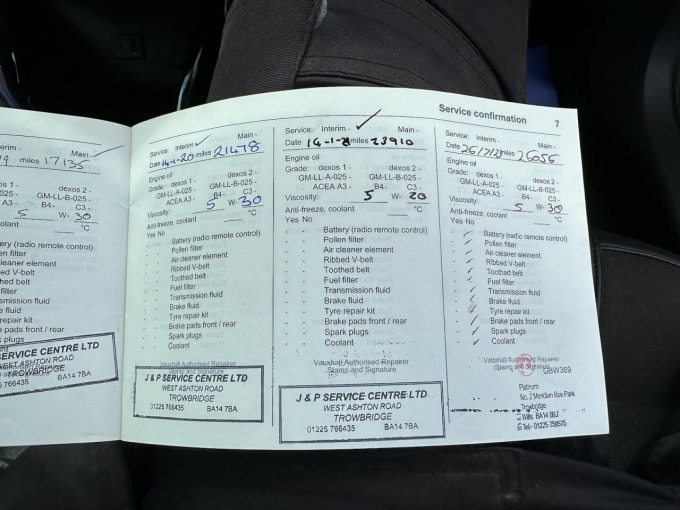 Service confirmation 7
miles 17135 Main -
s 1 - dexos 2 -
GM-LL-A-025 - GM-LL-B-025 -
A3 - B4- C3 -
5 W- 30
°C
ery (radio remote control)
n filter
leaner element
ed V-belt
ed belt
filter
smission fluid
e fluid
repair kit
e pads front / rear
k plugs
ERVICE CENTRE LTD
WEST ASHTON ROAD
TROWBRIDGE
766435 BA14 7BA
Service: Interim - Main -
Date 14-1-20 miles 21478
Engine oil
Grade: dexos 1 - dexos 2 -
GM-LL-A-025 - GM-LL-B-025 -
ACEA A3 - B4- C3 -
Viscosity: 5 W- 30
Anti-freeze, coolant °C
Yes No
- - Battery (radio remote control)
- - Pollen filter
- - Air cleaner element
- - Ribbed V-belt
- - Toothed belt
- - Fuel filter
- - Transmission fluid
- - Brake fluid
- - Tyre repair kit
- - Brake pads front / rear
- - Spark plugs
- - Coolant
Vauxhall Authorised Repairer
J & P SERVICE CENTRE LTD
WEST ASHTON ROAD
TROWBRIDGE
01225 766435 BA14 7BA
Service: Interim - Main -
Date 14-1-21 miles 23910
Engine oil
Grade: dexos 1 - dexos 2 -
GM-LL-A-025 - GM-LL-B-025 -
ACEA A3 - B4- C3 -
Viscosity: 5 W- 20
Anti-freeze, coolant °C
Yes No
- - Battery (radio remote control)
- - Pollen filter
- - Air cleaner element
- - Ribbed V-belt
- - Toothed belt
- - Fuel filter
- - Transmission fluid
- - Brake fluid
- - Tyre repair kit
- - Brake pads front / rear
- - Spark plugs
- - Coolant
Vauxhall Authorised Repairer
Stamp and Signature
J & P SERVICE CENTRE LTD
WEST ASHTON ROAD
TROWBRIDGE
01225 766435 BA14 7BA
Service: Interim - Main -
Date miles 26056
Engine oil
Grade: dexos 1 - dexos 2 -
GM-LL-A-025 - GM-LL-B-025 -
ACEA A3 - B4- C3 -
Viscosity: 5 W- 30
Anti-freeze, coolant °C
Yes No
- Battery (radio remote control)
- Pollen filter
- Air cleaner element
- Ribbed V-belt
- Toothed belt
- Fuel filter
- Transmission fluid
- Brake fluid
- Tyre repair kit
- Brake pads front / rear
- Spark plugs
- Coolant
Vauxhall Authorised Repairer
Stamp and Signature GBW369
Platinum
No. 2 Meridian Bus Park
Trowbridge
Wilts BA14 0BJ
Tel - 01225 759575